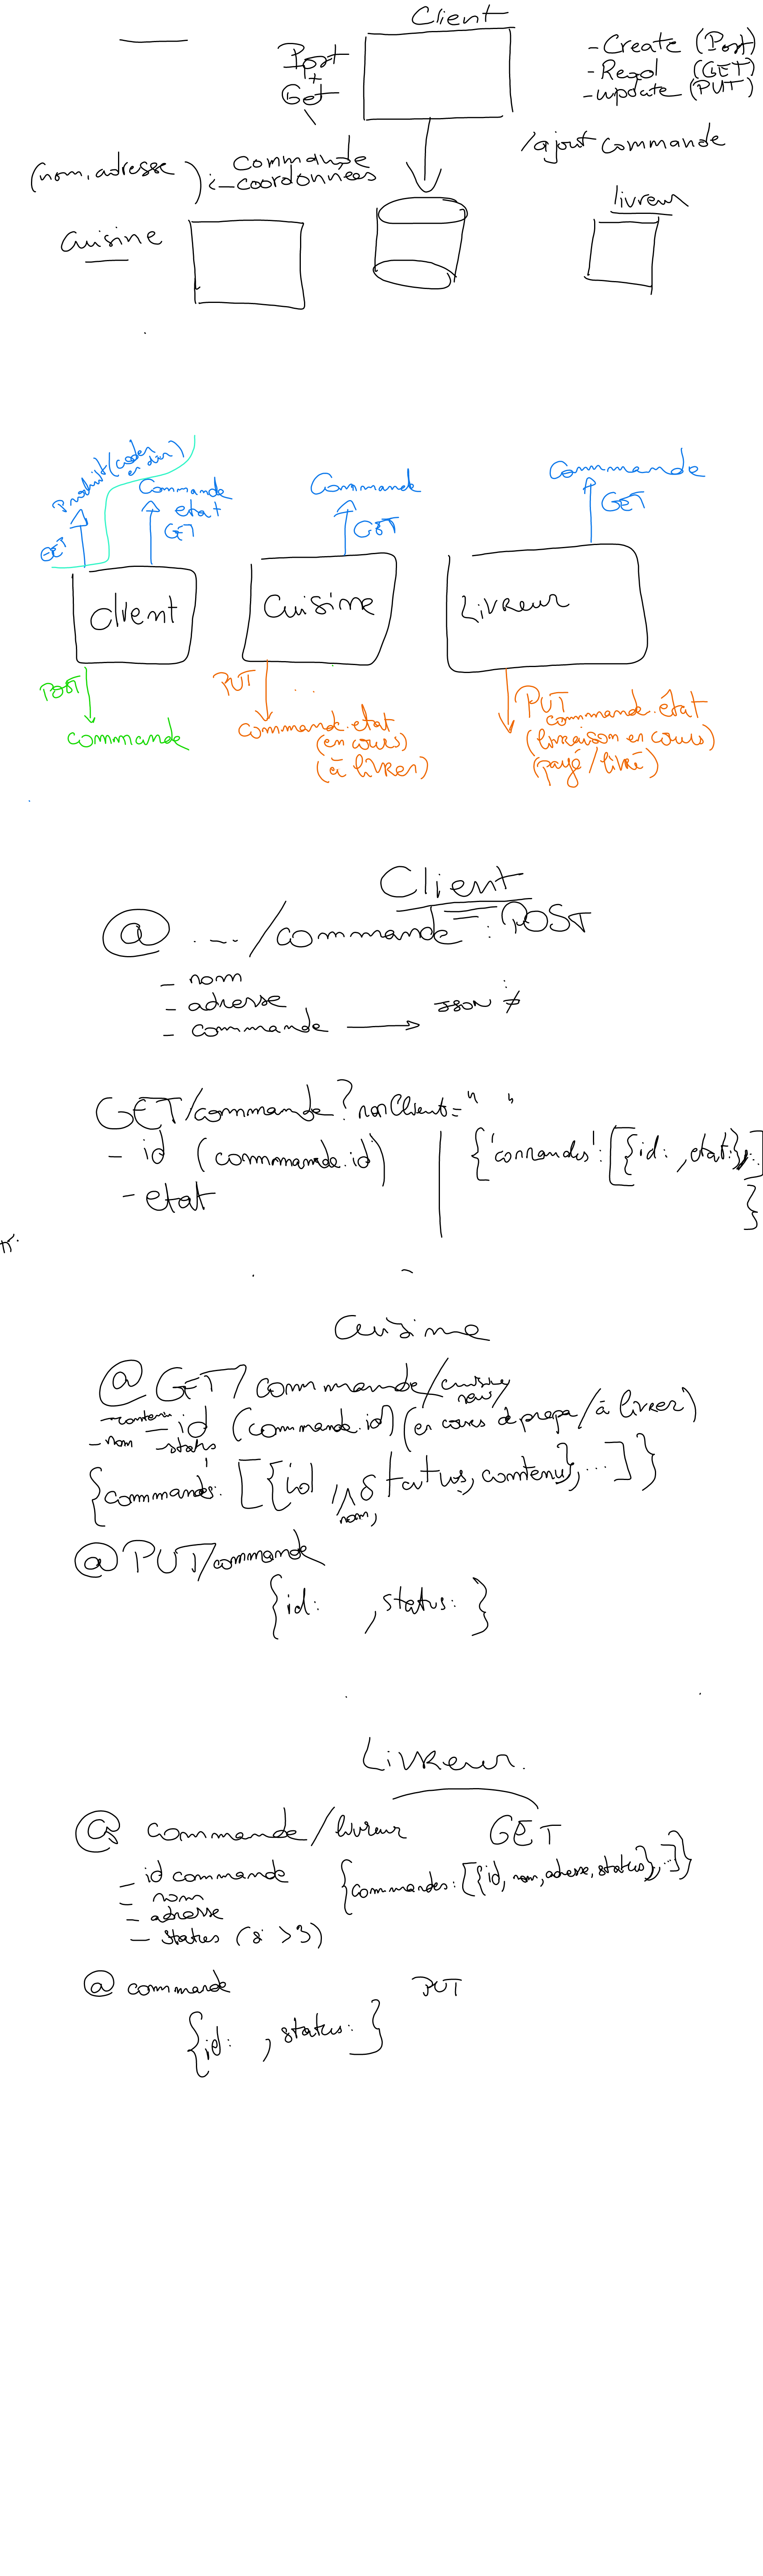 Client
Post
+
Get
- Create (Post)
- Read (GET)
- update (PUT)
/ajout commande
(nom, adresse ) : - commande
- coordonnées
livreur
Cuisine
Produit (coder en dur)
GET
Commande
etat
GET
Commande
GET
Commande
GET
Client
Cuisine
Livreur
POST
commande
PUT
commande.etat
(en cours)
(à livrer)
PUT
commande.état
(livraison en cours)
(payé/livré)
Client
@ .../commande : POST
- nom
- adresse
- commande → JSON
GET/commande?nomClient=" "
- id (commande.id)
- etat
{'commandes':[{id: , etat:},...]
}
Cuisine
@ GET/commande/cuisine
- contenu
- id (commande.id) (en cours de prepa/à livrer)
- nom - status
{commandes: [{id, nom, status, contenu},...]}
@ PUT/commande
{id: , status: }
Livreur.
@ commande/livreur GET
- id commande
- nom
- adresse
- status (si >3)
{commandes:[{id, nom, adresse, status},...]}
@ commande PUT
{id: , status: }